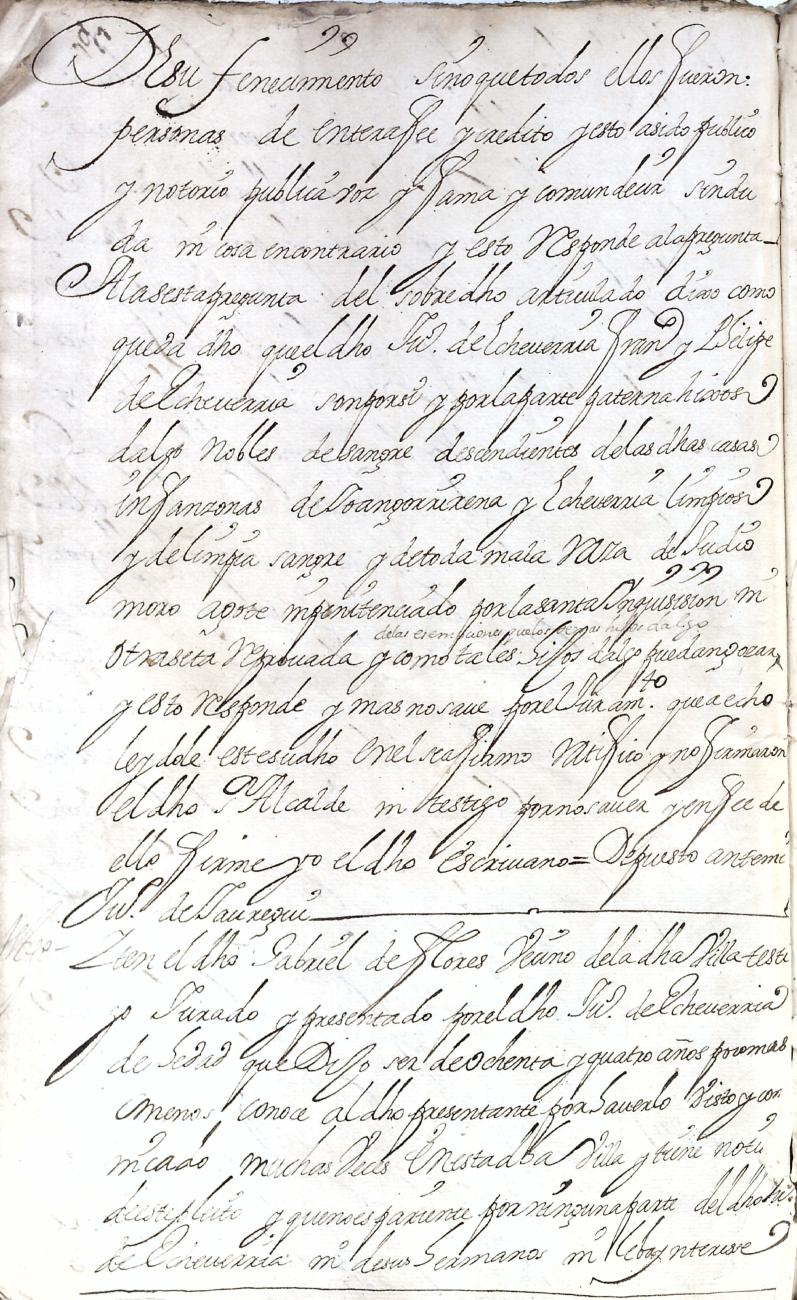 Desu fenecimiento sinoquetodos ellos fueron:
personas de enterafee y credito y esto asido publico
y notorio publica voz y fama y comundecir sindu
da ni cosa encontrario y esto Responde alapregunta
Alasestapregunta del sobredho articulado dixo como
queda dho queeldho Ju.º deEcheverria Fran.co y Phelipe
deEcheverria sonporsi y porlaparte paterna hixos
dalgo nobles desangre descendientes delasdhas casas
infanzonas de y Echeverria limpios
y delimpia sangre y detoda mala Raza de Judio
moro agote nipenitenciado porlasanta Inquisision ni
delas esempciones quelos demas hijos dalgo
otraseta Reprouada y comotales hijos dalgo puedangozar
y esto Responde y mas nosaue porelJuram.to queaecho
leydole estesudho Enel seafirmo Ratifico y no firmaron
eldho S.r Alcalde ni testigo pornosauer y enfee de
ello firme yo eldho escriuano = Depuesto antemi
Ju.º deJauregui
Iten eldho Gabriel deFlores Vecino deladha Villa testi
go Jurado y presentado poreldho Ju.º deEcheverria
de hedad queDijo ser deochenta y quatro años pocomas
omenos, conoce aldho presentante porhauerlo Visto y com
nicado muchas Veces Enestadha Villa y tiene noti
deestepleito y quenoespariente porningunaparte deldho Ju.º
deEcheverria ni desus hermanos ni ynterese